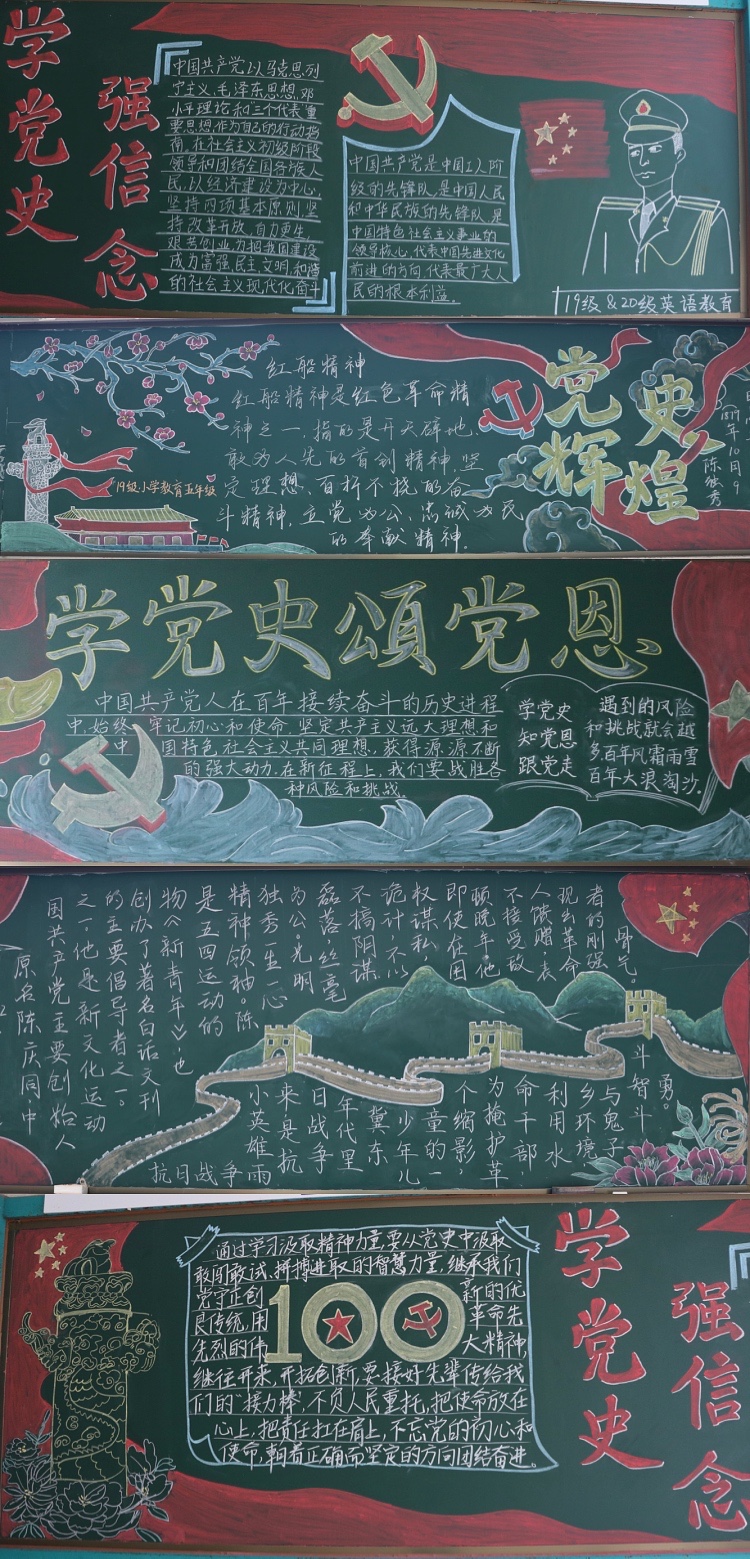 学党史
强信念
中国共产党以马克思列
宁主义、毛泽东思想、邓
小平理论和“三个代表”重
要思想作为自己的行动指
南，在社会主义初级阶段
领导和团结全国各族人
民，以经济建设为中心，
坚持四项基本原则，坚
持改革开放，自力更生，
艰苦创业，为把我国建设
成为富强、民主、文明、和谐
的社会主义现代化奋斗
中国共产党是中国工人阶
级的先锋队，是中国人民
和中华民族的先锋队，是
中国特色社会主义事业的
领导核心，代表中国先进文化
前进的方向，代表最广大人
民的根本利益.
19级&20级英语教育
红船精神
红船精神是红色革命精
神之一，指的是开天辟地、
敢为人先的首创精神坚
定理想、百折不挠的奋
斗精神，立党为公、忠诚为民
的奉献精神。
19级小学教育五年级
党史
辉煌
1879年10月9
陈独秀
学党史頌党恩
中国共产党人在百年接续奋斗的历史进程
中，始终牢记初心和使命，坚定共产主义远大理想和
中国特色社会主义共同理想，获得源源不断
的强大动力.在新征程上，我们要战胜各
种风险和挑战.
学党史
知党恩
跟党走
遇到的风险
和挑战就会越
多.百年风霜雨雪
百年大浪淘沙.
原名陈庆同中
国共产党主要创始人
之一，他是新文化运动
的主要倡导者之一。
创办了著名白话文刊
物《新青年》，也
是五四运动的
精神领袖。陈
独秀一生一心
为公，光明
磊落，丝毫
不搞阴谋
诡计，不以
权谋私，
即使在困
顿晚年，他
不接受敌
人馈赠，表
现出革命
者的刚强
骨气。
抗日战争雨
小英雄
来是抗
日战争
年代里
冀东
少年儿
童的一
个缩影
为掩护革
命干部
利用水
乡环境
与鬼子
斗智斗
勇。
通过学习汲取精神力量，要从党史中汲取
敢闯敢试、拼搏进取的智慧力量，继承我们
党守正创新的优
良传统，用革命先
先烈的伟大精神，
继往开来，开拓创新，要接好先辈传给我
们的“接力棒”，不负人民重托，把使命放在
心上，把责任扛在肩上，不忘党的初心和
使命，朝着正确而坚定的方向团结奋进。
100
学党史
强信念